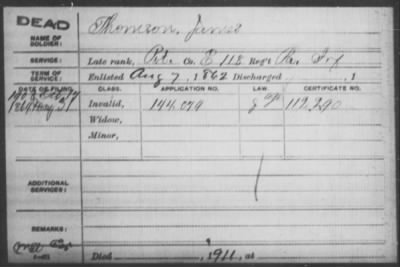 DEAD
NAME OF SOLDIER: Thomson, James
SERVICE: Late rank, Pvt. Co. E 118 Reg't Pa. Inf
TERM OF SERVICE: Enlisted Aug 7, 1862 Discharged , 1
DATE OF FILING. CLASS. APPLICATION NO. LAW. CERTIFICATE NO.
Invalid, 144.079 112.290
Widow,
Minor,
ADDITIONAL SERVICES:
REMARKS:
Died , 1911, at